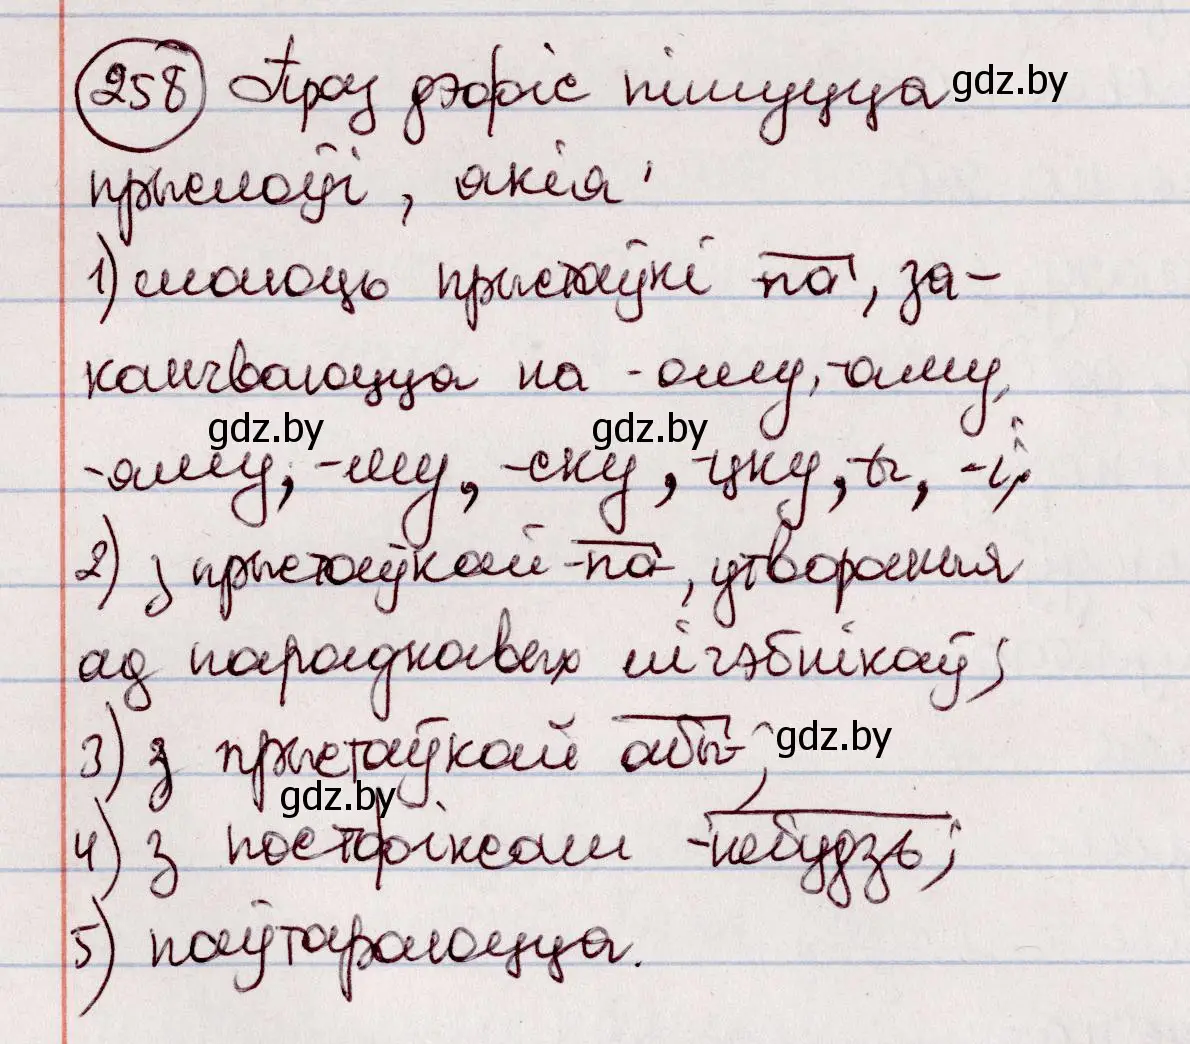 258 Праз дэфіс пішуцца gdz.by
прыслоўі, якія:
1) маюць прыстаўкі па, за-
канчваюцца на -ому, -аму,
gdz.by gdz.by
-яму, -му, -ску, -цку, -ы, -і;
2) з прыстаўкай -па-, утвораныя
ад парадкавых лічэбнікаў;
3) з прыстаўкай абы-; gdz.by
gdz.by
4) з постфіксам -небудзь;
5) паўтараюцца.